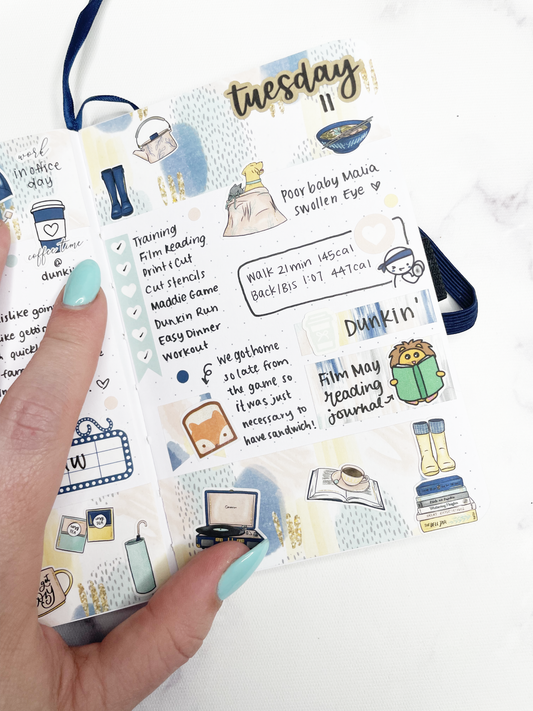 work
in office
day
coffee time
@
dunkin
islike going
like getti
quick
farm
W
tuesday
11
Poor baby Malia
Swollen Eye ♡
Training
Film Reading
Print & Cut
Cut Stencils
Maddie Game
Dunkin Run
Easy Dinner
Workout
Walk 21min 145cal
Back/Bis 1:07 447cal
Dunkin'
Film May
reading
journal
We got home
so late from
the game so
it was just
necessary to
have sandwich!
THE BELL JAR